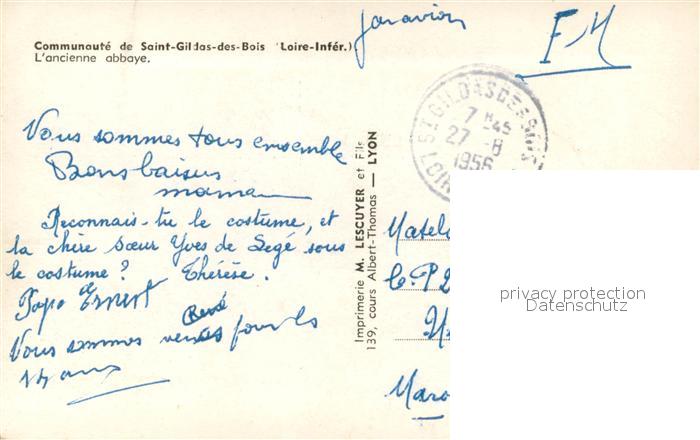 Communauté de Saint-Gildas-des-Bois (Loire-Infér.)
L'ancienne abbaye.
par avion
F-M
ST GILDAS DES BOIS
7 H45
27 -8
1956
LOIRE
Vous sommes tous ensemble
Bons baisers
maman
Reconnais-tu le costume, et
la chère sœur Yves de Segé sous
le costume ? Thérèse.
Papa Ernest
René
Vous sommes venus pour les
ans
Imprimerie M. LESCUYER et Fils
139, cours Albert-Thomas — LYON
Matelo
Maro
privacy protection
Datenschutz